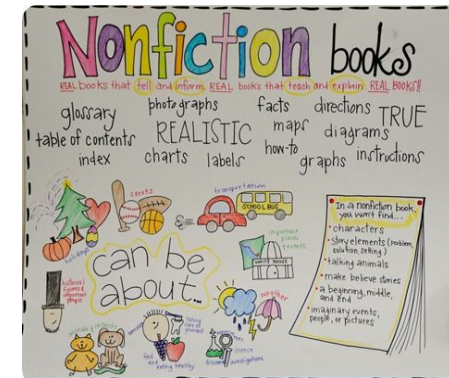 Nonfiction books
REAL books that tell and inform. REAL books that teach and explain. REAL BOOKS!!
glossary photographs facts directions TRUE
table of contents REALISTIC maps diagrams
index charts labels how-to graphs instructions
sports
transportation
SCHOOL BUS
holidays
can be
about...
important
places
& events
WHITE HOUSE
weather
historical
figures &
important
people
animals & insects
taking
care of
yourself
food and
eating healthy
science
investigations
In a nonfiction book,
you won't find...
• characters
• story elements (problem,
solution, setting)
• talking animals
• make believe stories
• a beginning, middle,
and end
• imaginary events,
people, or pictures